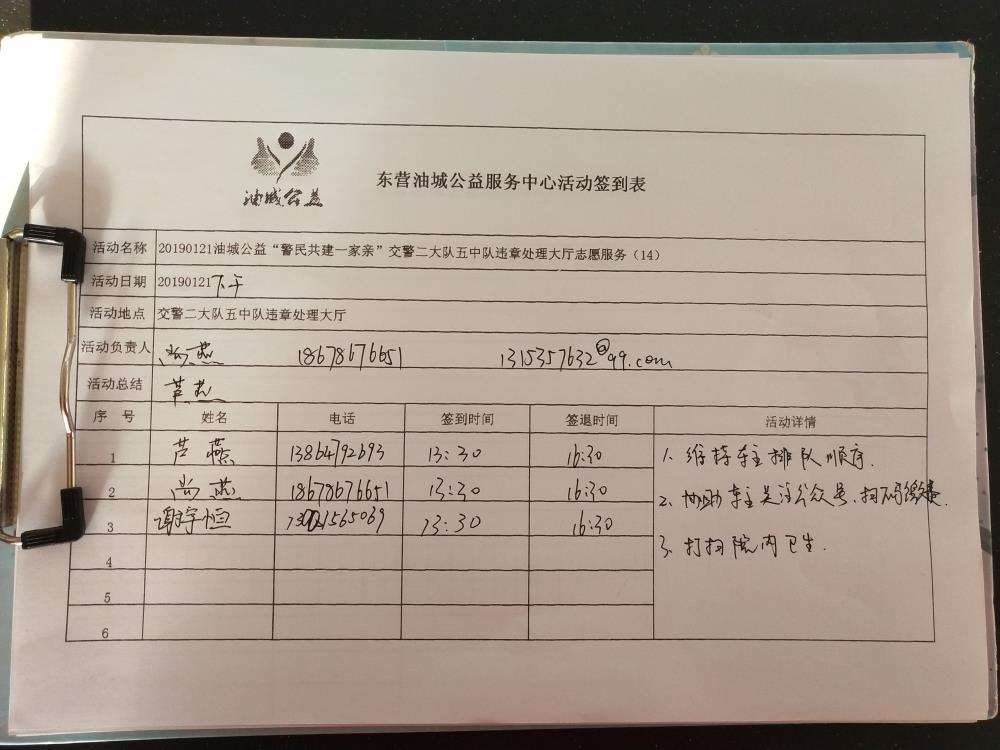 油城公益
东营油城公益服务中心活动签到表
活动名称 20190121油城公益“警民共建一家亲”交警二大队五中队违章处理大厅志愿服务（14）
活动日期 20190121下午
活动地点 交警二大队五中队违章处理大厅
活动负责人 尚燕 18678676651 1315357632@qq.com
活动总结 芦燕
序 号 姓名 电话 签到时间 签退时间 活动详情
1 芦燕 13864792693 13:30 16:30 1、维持车主排队顺序.
2 尚燕 18678676651 13:30 16:30 2、协助车主关注公众号、扫码缴费.
3 谢宇恒 13:30 16:30 3、打扫院内卫生.
4
5
6